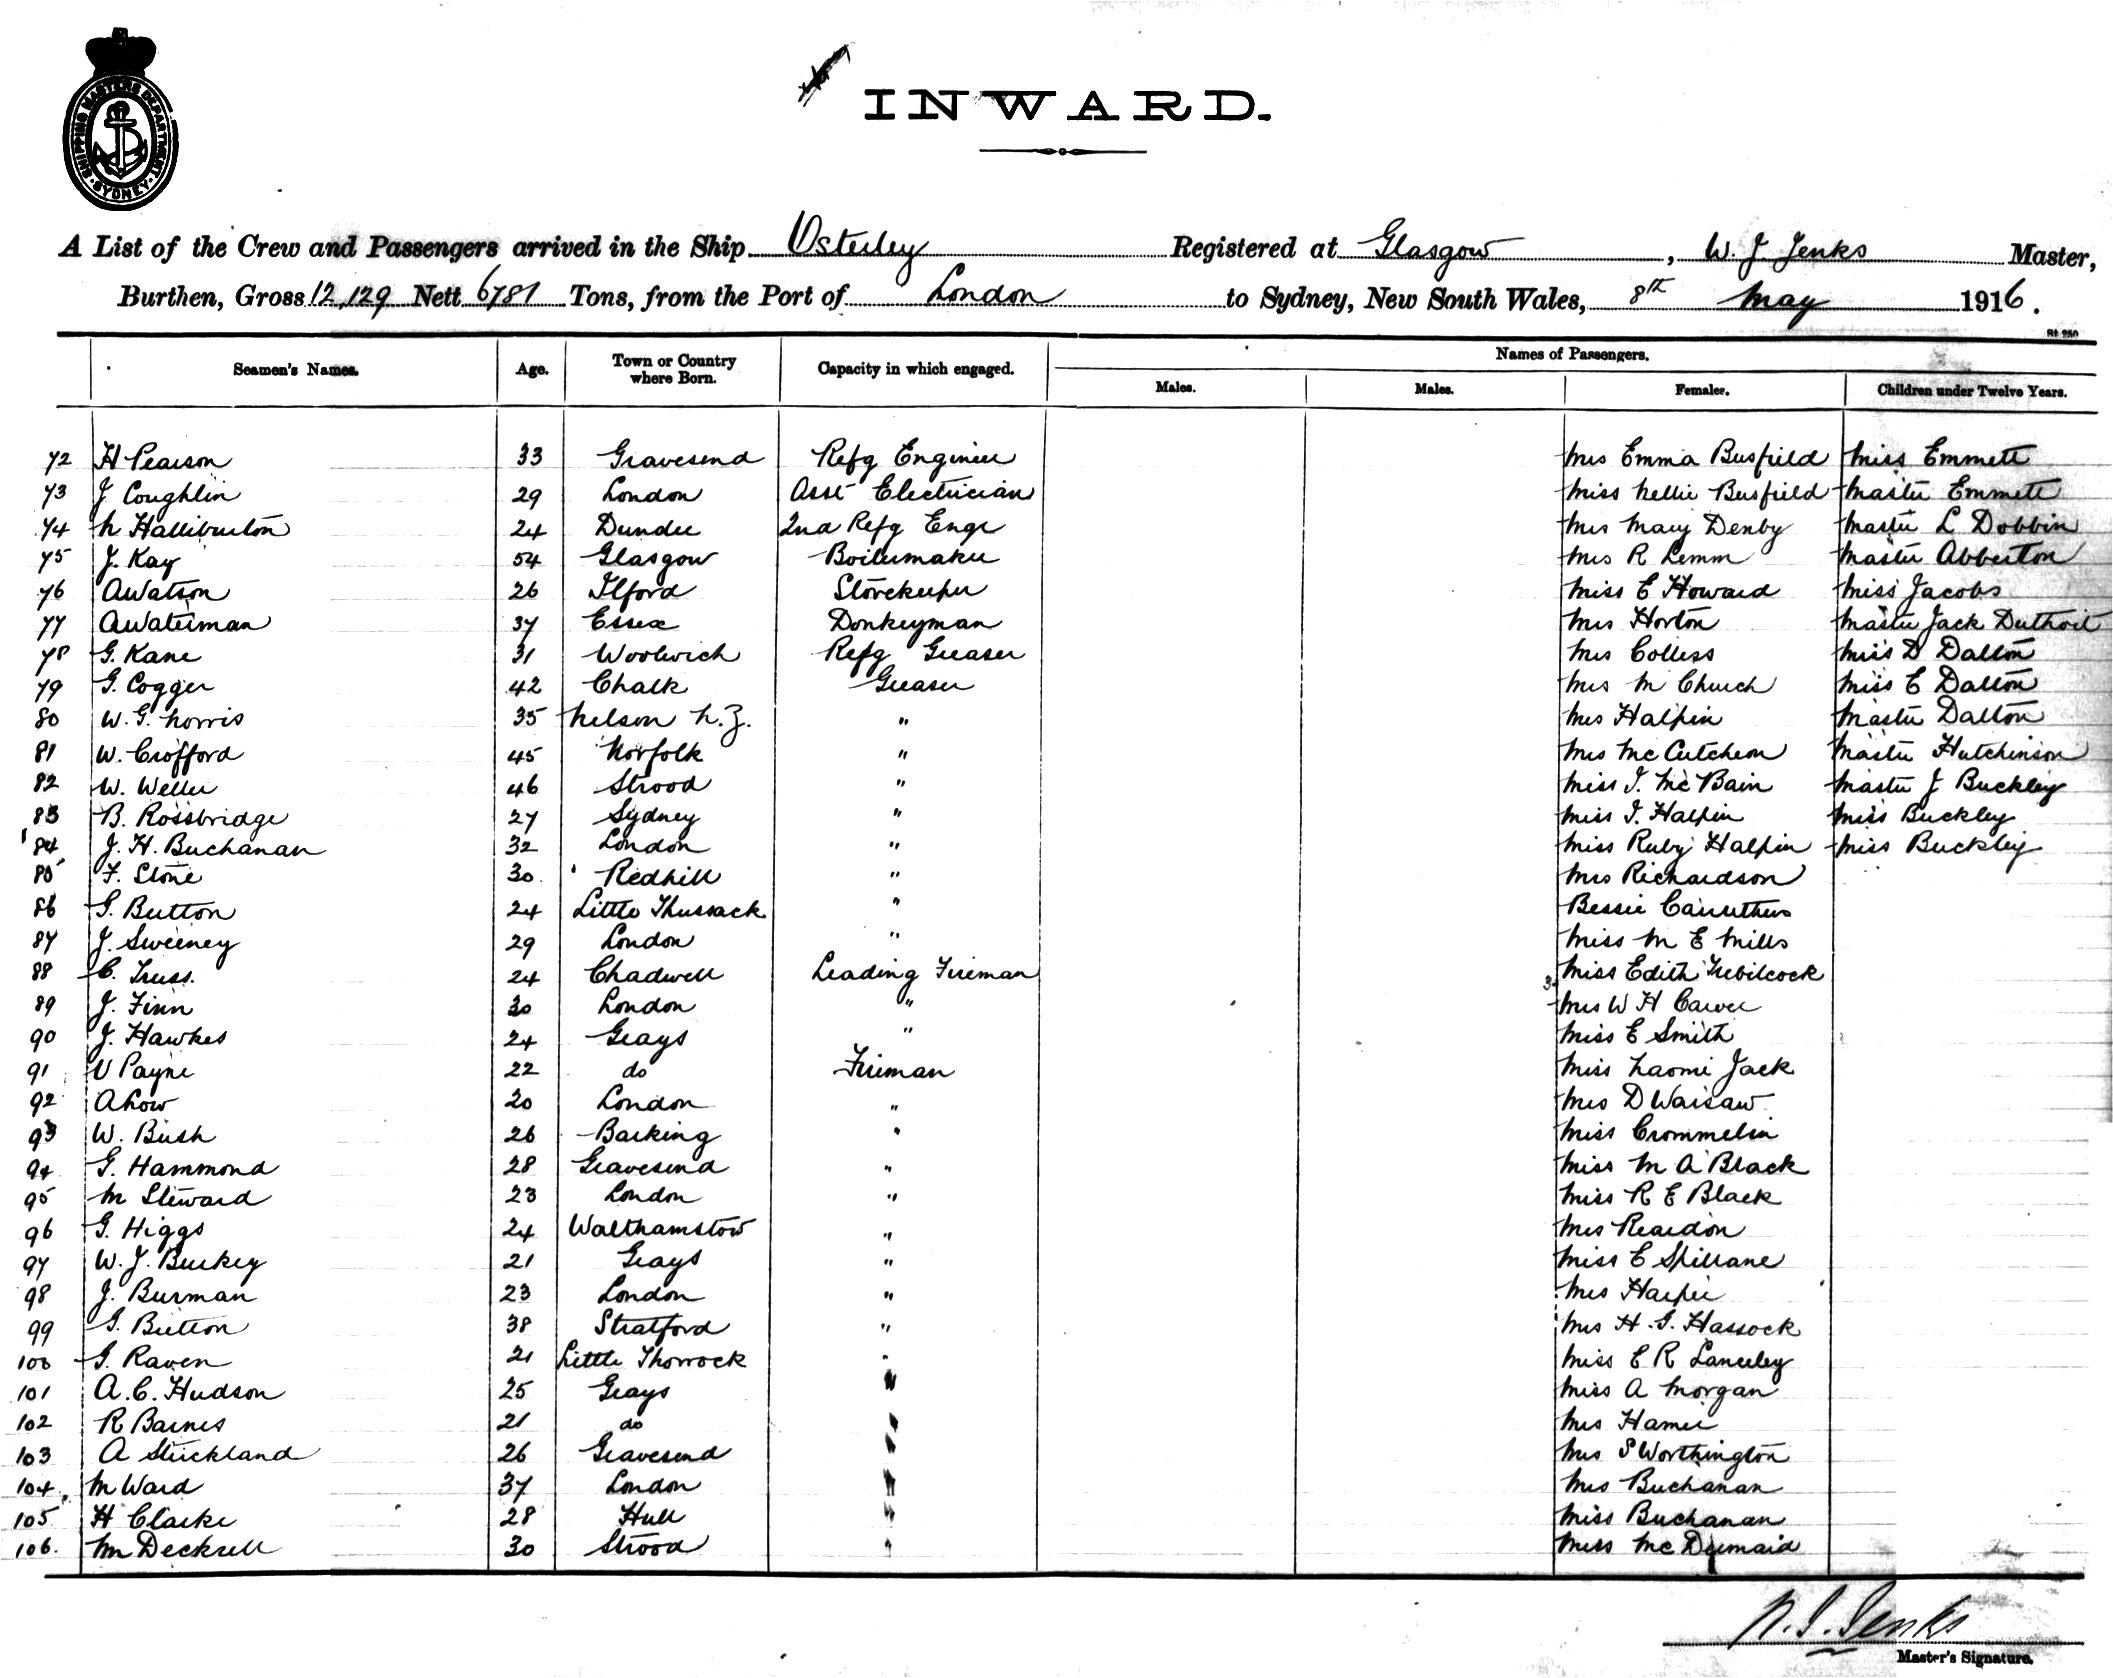 SHIPPING MASTERS DEPARTMENT. SYDNEY
INWARD.
A List of the Crew and Passengers arrived in the Ship Osterley Registered at Glasgow, W. J Jenks Master,
Burthen, Gross 12,129 Nett 6781 Tons, from the Port of London to Sydney, New South Wales, 8th May 1916.
St 250
Names of Passengers.
Seamen's Names. Age. Town or Country where Born. Capacity in which engaged. Males. Males. Females. Children under Twelve Years.
72 H Pearson 33 Gravesend Refg Engineer Mrs Emma Busfield Miss Emmett
73 J Coughlin 29 London Asst Electrician Miss Nellie Busfield Master Emmett
74 N Halliburton 24 Dundee 2nd Refg Engr Mrs Mary Denby Master L Dobbin
75 J. Kay 54 Glasgow Boilermaker Mrs R Lemm Master Abberton
76 A Watson 26 Ilford Storekeeper Miss E Howard Miss Jacobs
77 A Waterman 37 Essex Donkeyman Mrs Horton Master Jack Duthoit
78 G. Kane 31 Woolwich Refg Greaser Mrs Colless Miss D Dalton
79 G. Cogger 42 Chalk Greaser Mrs M Church Miss E Dalton
80 W. G. Norris 35 Nelson N.Z. " Mrs Halpin Master Dalton
81 W. Crofford 45 Norfolk " Mrs McCutcheon Master Hutchinson
82 W. Weller 46 Strood " Miss I. McBain Master J Buckley
83 B. Rossbridge 27 Sydney " Miss I. Halpin Miss Buckley
84 J. H. Buchanan 32 London " Miss Ruby Halpin Miss Buckley
85 F. Stone 30 Redhill " Mrs Richardson
86 G. Button 24 Little Thussack " Bessie Carruthers
87 J. Sweeney 29 London " Miss M E Mills
88 C. Truss. 24 Chadwell Leading Fireman Miss Edith Trebilcock
89 J. Finn 30 London " Mrs W H Carver
90 J. Hawkes 24 Grays " Miss E Smith
91 V Payne 22 do Fireman Miss Naomi Jack
92 A Low 20 London " Mrs D Waisaw
93 W. Bush 26 Barking " Miss Crommelin
94 G. Hammond 28 Gravesend " Miss M A Black
95 M Steward 23 London " Miss R E Black
96 G. Higgs 24 Walthamstow " Mrs Reardon
97 W. J. Buckey 21 Grays " Miss E Spillane
98 J. Burman 23 London " Mrs Harper
99 G. Button 38 Stratford " Mrs H. G. Hassock
100 G. Raven 21 Little Thorrock " Miss E R Lanceley
101 A. C. Hudson 25 Grays " Miss A Morgan
102 R Barnes 21 do " Mrs Hamer
103 A Strickland 26 Gravesend " Mrs S Worthington
104 M Ward 37 London " Mrs Buchanan
105 H Clarke 28 Hull " Miss Buchanan
106. M Deckrell 30 Strood " Miss McDermaid
W. J. Jenks
Master's Signature.